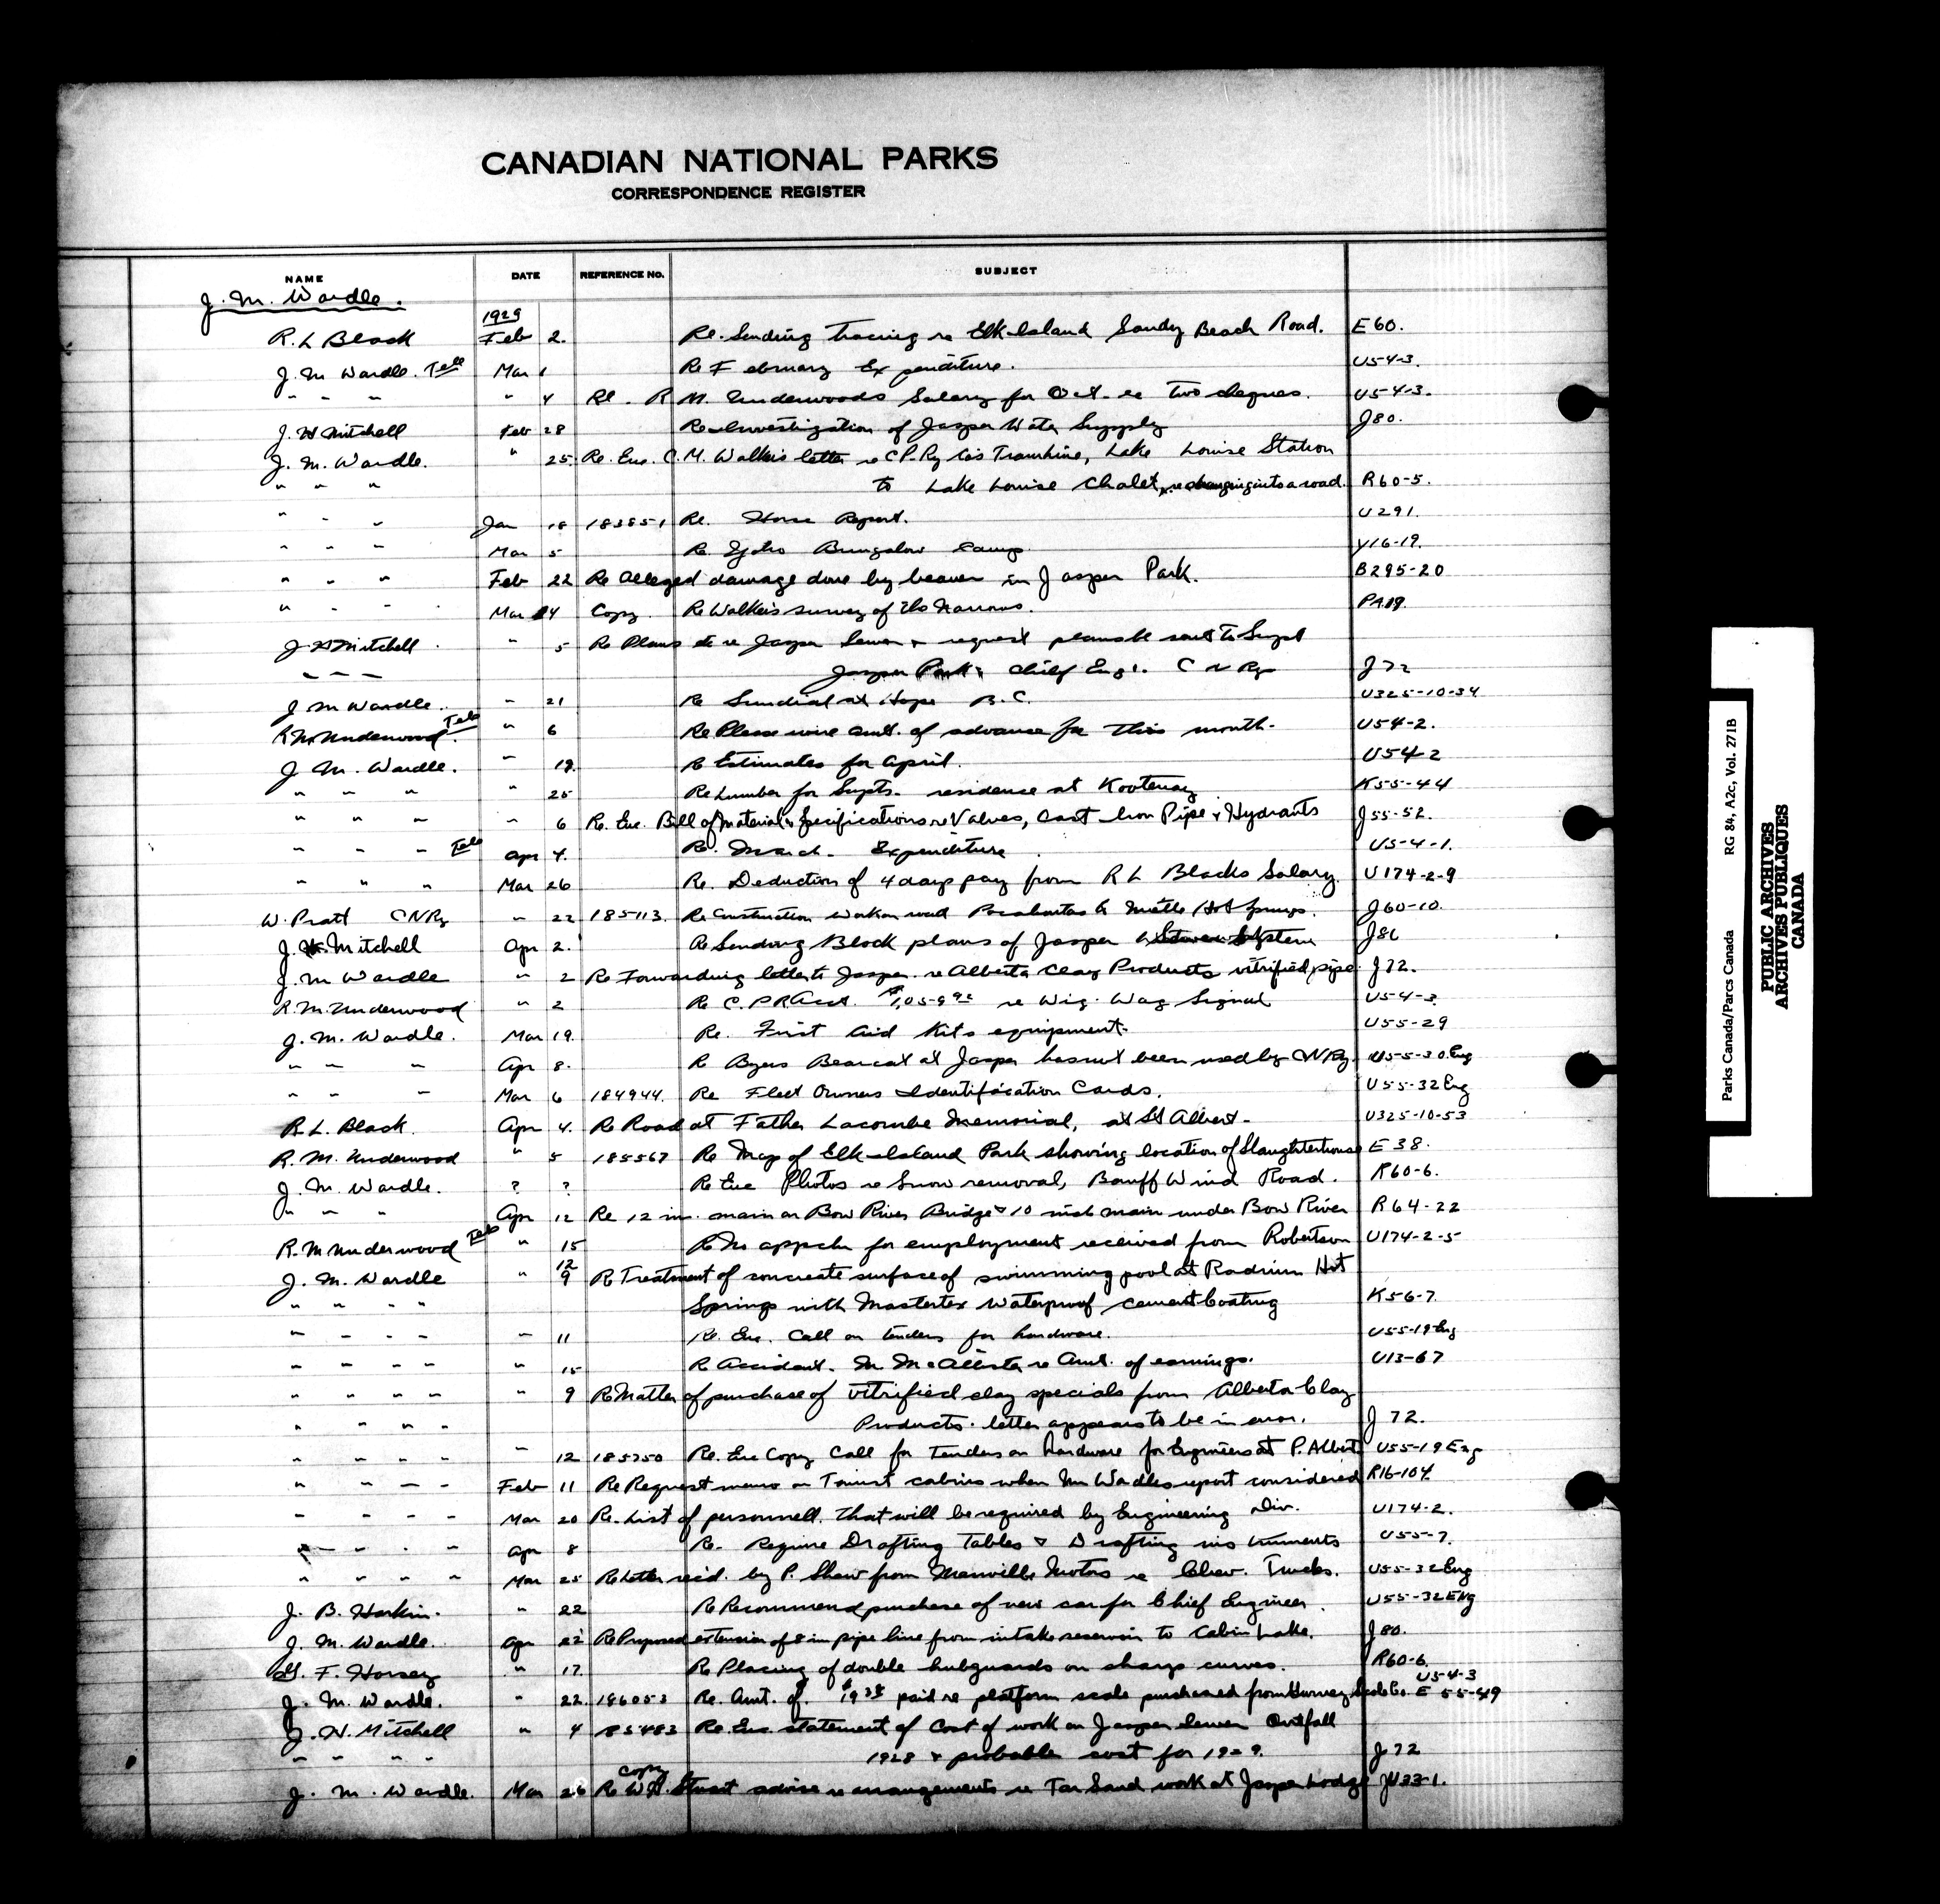 CANADIAN NATIONAL PARKS
CORRESPONDENCE REGISTER
NAME DATE REFERENCE NO. SUBJECT
J. M. Wardle.
1929
R. L Black Feb 2. Re. Sending tracing re Elk Island Sandy Beach Road. E 60.
J. M Wardle. Tele Mar 1 Re February Expenditure. U54-3.
" " " " 4 Re. R M. Underwoods Salary for Oct. re two cheques. U54-3.
J. H Mitchell Feb 28 Re Investigation of Jasper Water Supply J80.
J. M. Wardle. " 25. Re. Enc. C. M. Walkers letter re C P. Ry Co's Tramline, Lake Louise Station
" " " to Lake Louise Chalet, re changing into a road. R60-5.
" " " Jan 18 183851 Re. Horse Report. U291.
" " " Mar 5 Re Bungalow Camp Y16-19.
" " " Feb 22 Re Alleged damage done by beaver in Jasper Park. B295-20
" " " Mar 14 Copy. Re Walkers survey of the Narrows. PA89.
J. H Mitchell. " 5 Re Plans etc re Jasper Sewer & request plans be sent to Supt
" " " Jasper Park & Chief Eng'. C N Ry J72
J M Wardle. " 21 Re Sundial at Hope B.C. U325-10-34
R. M. Underwood. Tele " 6 Re Please wire amt. of advance for this month. U54-2.
J. M. Wardle. " 19. Re Estimates for April. U54-2
" " " " 25 Re Lumber for Supts. residence at Kootenay K55-44
" " " " 6 Re. Enc. Bill of Material & Specifications re Valves, Cast Iron Pipe & Hydrants J55-52.
" " " " Tele Apr 4. Re. March. Expenditure U5-4-1.
" " " Mar 26 Re. Deduction of 4 days pay from R L Blacks Salary. U174-2-9
W. Pratt CNRy " 22 185113. Re Construction work on road Pocahontas to Miette Hot Springs. J60-10.
J. H. Mitchell Apr 2. Re Sending Block plans of Jasper Sewer System J86
J. M Wardle " 2 Re Forwarding letter to Jasper. re Alberta Clay Products vitrified pipe. J72.
R. M. Underwood " 2 Re C.P.R Acct. re Wig. Wag Signal U5-4-3
J. M. Wardle. Mar 19. Re. First Aid Kits equipment. U55-29
" " " Apr 8. Re Byers Bearcat at Jasper has not been used by CNRy. U55-30 Eng
" " " Mar 6 184944. Re Fleet Owners Identification Cards. U55-32 Eng
R. L. Black. Apr 4. Re Road at Father Lacombe Memorial, at St Albert. U325-10-53
R. M. Underwood " 5 185567 Re Map of Elk Island Park showing location of Slaughterhouse E 38.
J. M. Wardle. ? ? Re Enc Photos re Snow removal, Banff Wind Road. R60-6.
" " " Apr 12 Re 12 in. main on Bow River Bridge & 10 inch main under Bow River R64-22
R. M Underwood Tele " 15 Re No appctn for employment received from Robertson U174-2-5
J. M. Wardle " 12 9 Re Treatment of concreate surface of swimming pool at Radium Hot
" " " " Springs with Mastertex Waterproof cement Coating K56-7.
" " " " " 11 Re. Enc. Call on tenders for hardware. U55-19 Eng
" " " " " 15 Re Accident. M McAllister re Amt. of earnings. U13-67
" " " " " 9 Re Matter of purchase of vitrified clay specials from Alberta Clay
" " " " Products. letter appears to be in error. J 72.
" " " " " 12 185750 Re. Enc Copy Call for Tenders on hardware for Engineers at P. Albert U55-19 Eng
" " " " Feb 11 Re Request memo on Tourist cabins when Mr Wardles report considered R16-104.
" " " " Mar 20 Re. List of personnell. that will be required by Engineering Div. U174-2.
" " " " Apr 8 Re. Require Drafting Tables & Drafting instruments U55-7.
" " " " Mar 25 Re Letter rec'd. by P. Shaw from Motors re Chev. Trucks. U55-32 Eng
J. B. Harkin. " 22 Re Recommend purchase of new car for Chief Engineer. U55-32 Eng
J. M. Wardle. Apr 22 Re Proposed extension of 8 in pipe line from intake reservoir to Cabin Lake. J80.
F. Horsey " 17. Re Placing of double hubguards on sharp curves. R60-6.
U5-4-3
J. M. Wardle. " 22. 186053 Re. Amt. of paid re platform scale purchased from Gurney Scale Co. E 55-49
J. H. Mitchell " 4 185483 Re Enc statement of Cost of work on Jasper Sewer Outfall
" " " " 1928 & probable cost for 1929. J72
J. M. Wardle. Mar 26 Copy Re W. A. Stuart advise re arrangements re Tar Sand work at Jasper Lodge JU33-1.
Parks Canada/Parcs Canada RG 84, A2c, Vol. 271B
PUBLIC ARCHIVES
ARCHIVES PUBLIQUES
CANADA